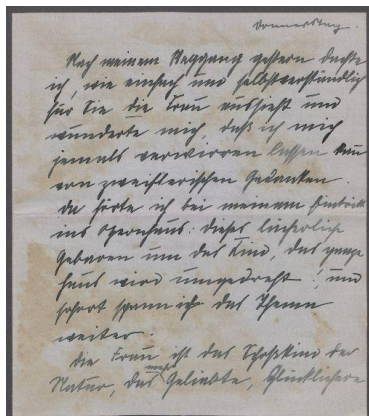 Donnerstag.
Nach meinem Weggang gestern dachte
ich, wie einfach und selbstverständlich
für Sie die Frau aussieht und
wunderte mich, daß ich mich
jemals verwirren lassen kann
von zweiflerischen Gedanken.
Da hörte ich bei meinem Eintritt
ins Opernhaus: dieses lächerliche
Gebaren um das Kind, das ganze
Haus wird umgedreht! und
sofort spann ich das Thema
weiter.
Die Frau ist das Schoßkind der
Natur, das mehr Geliebte, Glücklichere